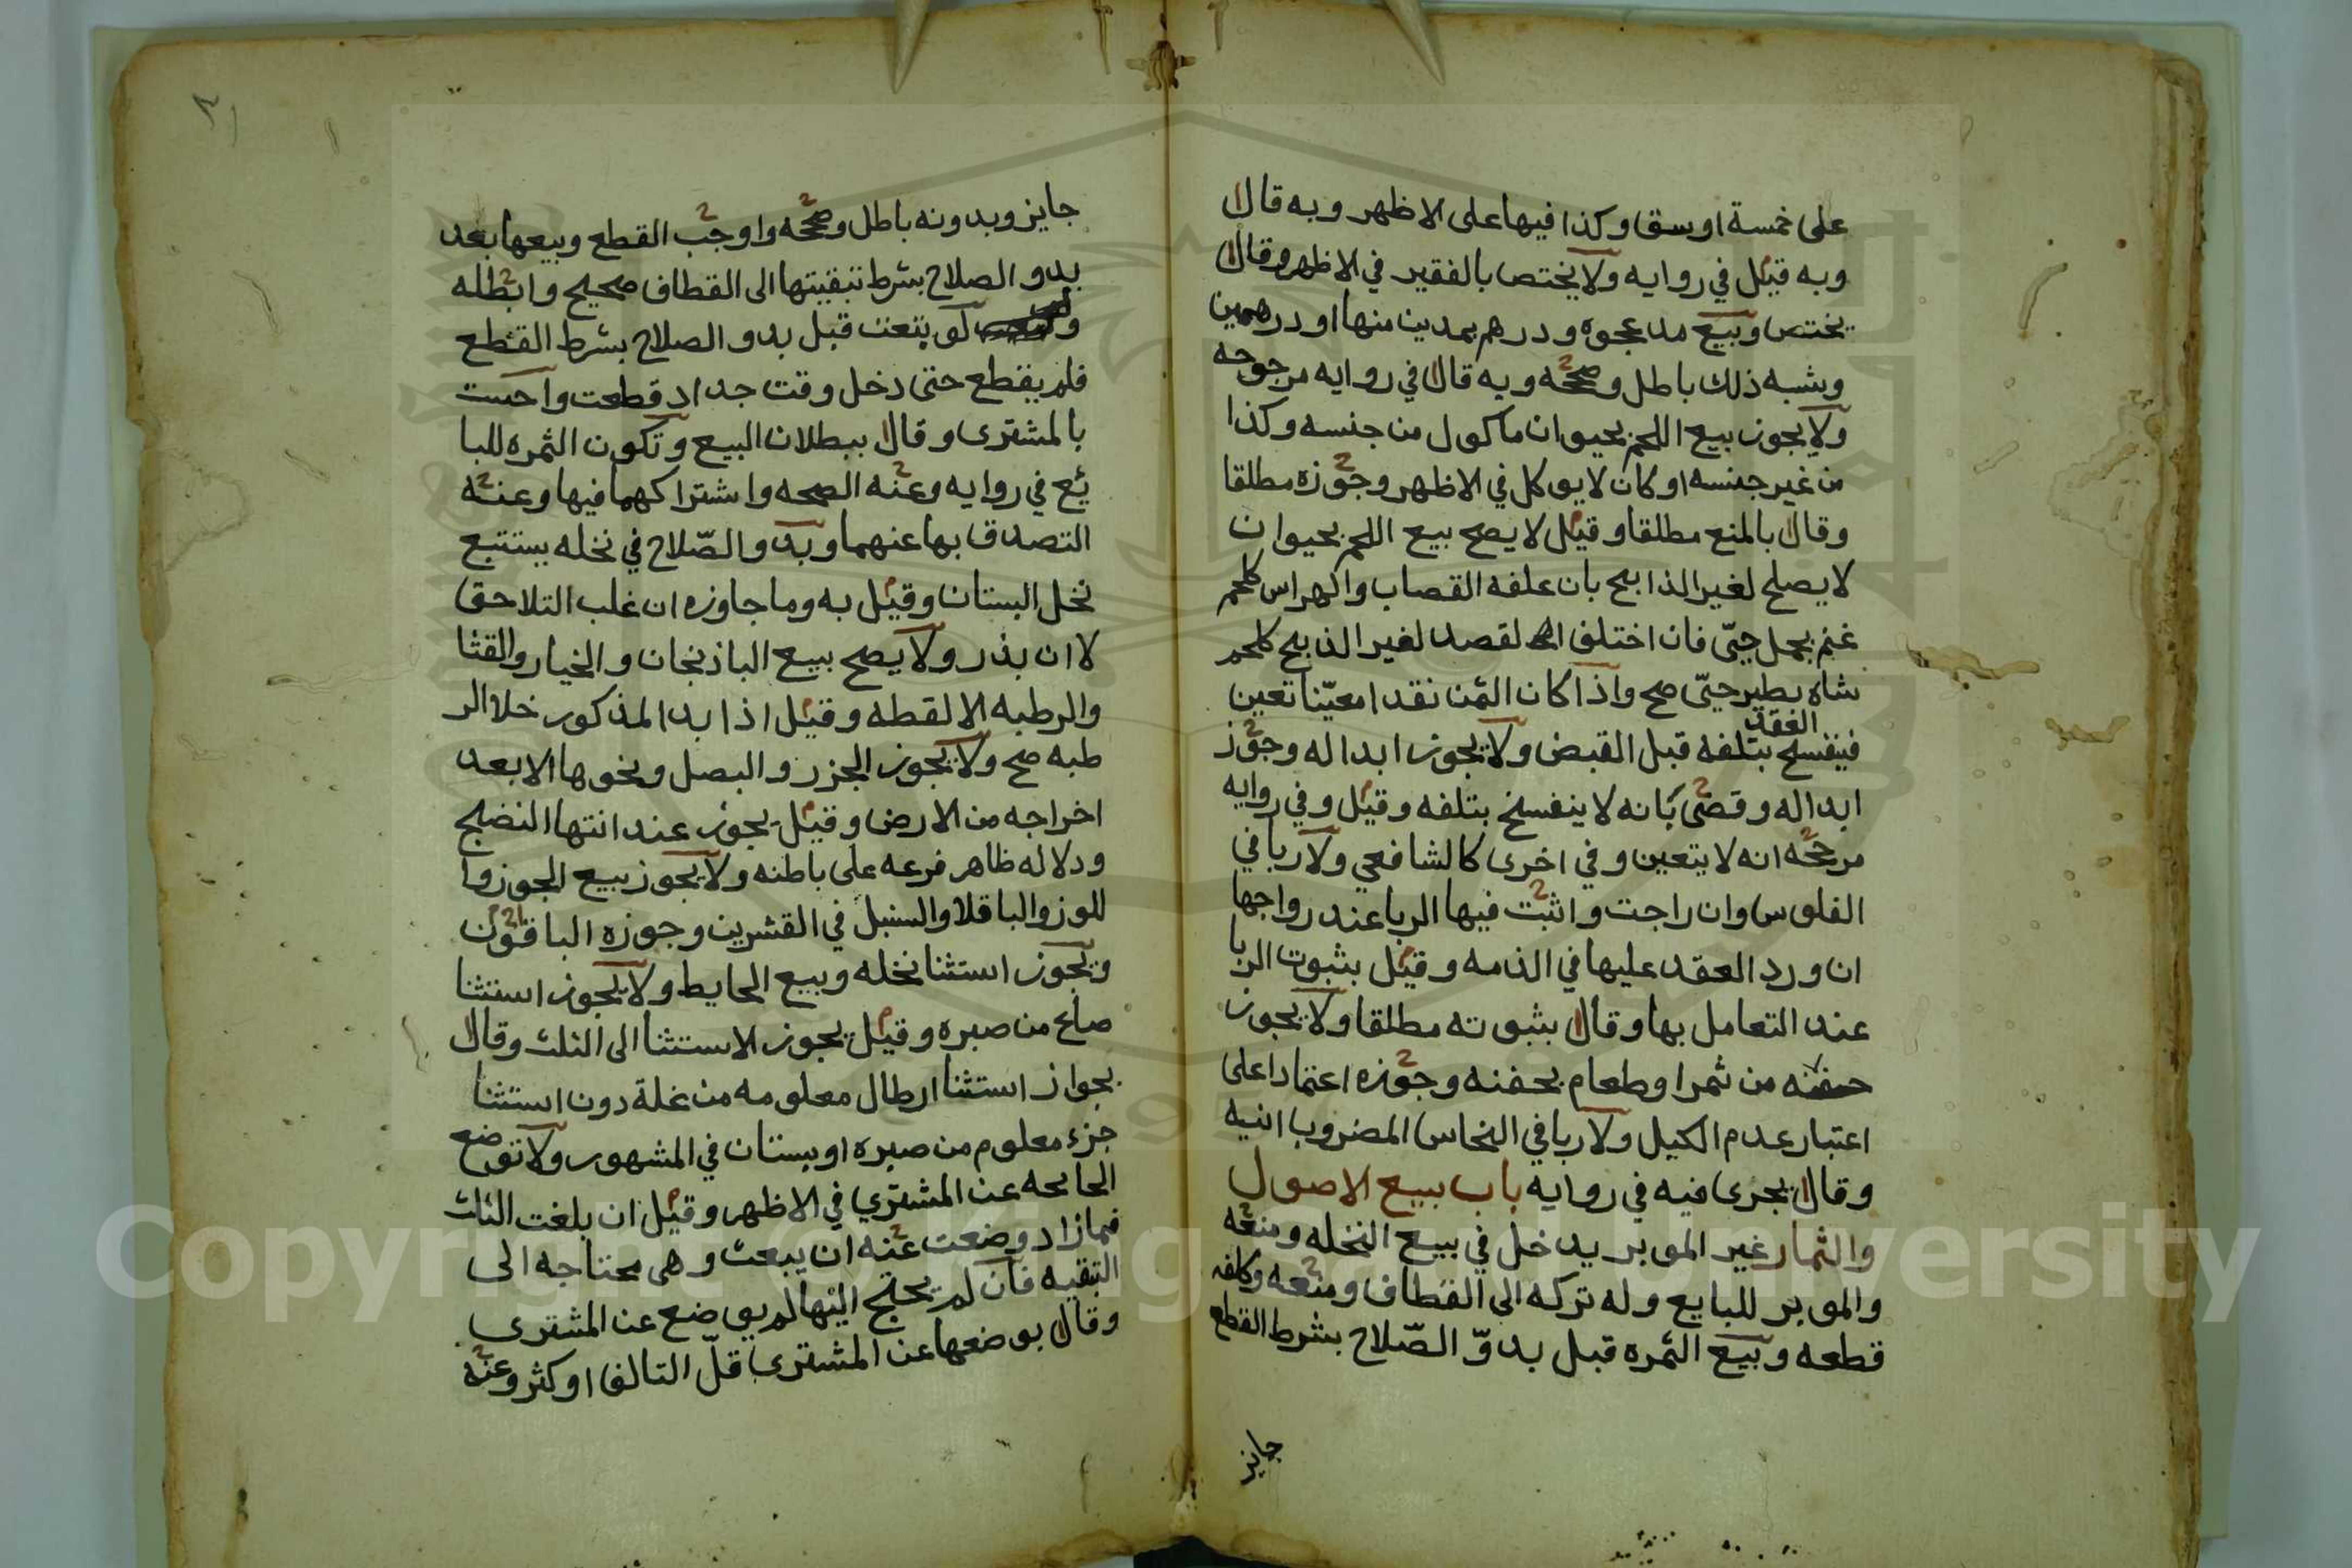 على خمسة اوسق وكذا فيها على الاظهر وبه قال
وبه قيل في روايه ولا يختص بالفقير في الاظهر وقال
يختص وبيع مد عجوه ودرهم بمدين منها او درهمين
وشبه ذلك باطل وصححه وبه قال في روايه مرجوحه
ولا يجوز بيع اللحم بحيوان ماكول من جنسه وكذا
من غير جنسه او كان لا يوكل في الاظهر وجوزه مطلقا
وقال بالمنع مطلقا وقيل لا يصح بيع اللحم بحيوان
لا يصلح لغير الذابح بان علفه القصاب والهراس كلحم
غنم بجمل حيّ فان اختلف لقصد لغير الذبح كلحم
شاه بطير حيّ صح واذا كان الثمن نقدا معيّنا تعين
العقد
فينفسخ بتلفه قبل القبض ولا يجوز ابداله وجوّز
ابداله وقضى بانه لا ينفسخ بتلفه وقيل وفي روايه
مرجحه انه لا يتعين وفي اخرى كالشافعي ولا ربا في
الفلوس وان راجت واثبت فيها الربا عند رواجها
ان ورد العقد عليها في الذمه وقيل بثبوت الربا
عند التعامل بها وقال بثبوته مطلقا ولا يجوز
حفنه من ثمر او طعام بحفنه وجوزه اعتمادا على
اعتبار عدم الكيل ولا ربا في النحاس المضروب انيه
وقال يجرى فيه في روايه باب بيع الاصول
والثمار غير الموبر يدخل في بيع النخله ومنعه
والموبر للبايع وله تركه الى القطاف ومنعه وكلفه
قطعه وبيع الثمره قبل بدوّ الصّلاح بشرط القطع
جايز
جايز وبدونه باطل وصححه واوجب القطع وبيعها بعد
بدو الصلاح بشرط تبقيتها الى القطاف صحيح وابطله
ولو بتعت قبل بدو الصلاح بشرط القطع
فلم يقطع حتى دخل وقت جداد قطعت
بالمشترى وقال ببطلان البيع وتكون الثمره للبا
يع في روايه وعنه الصحه واشتراكهما فيها وعنه
التصدق بها عنهما وبدو الصّلاح في نخله يستتبع
نخل البستان وقيل به وما جاوزه ان غلب التلاحق
لا ان بذر ولا يصح بيع الباذنجان والخيار والقثا
والرطبه الا لقطه وقيل اذا بدا المذكور خلا الر
طبه صح ولا يجوز الجزر والبصل ونحوها الا بعد
اخراجه من الارض وقيل يجوز عند انتها النضج
ودلاله ظاهر فرعه على باطنه ولا يجوز بيع الجوز وا
للوز والباقلا والسنبل في القشرين وجوزه الباقون
ويجوز استثنا نخله وبيع الحايط ولا يجوز استثنا
صاع من صبره وقيل يجوز الاستثنا الى الثلث وقال
بجواز استثنا ارطال معلومه من غلة دون استثنا
جزء معلوم من صبره او بستان في المشهور ولا توضع
الجايحه عن المشتري في الاظهر وقيل ان بلغت الثلث
فما زاد وضعت عنه ان بيعت وهى محتاجه الى
التبقيه فان لم يحتج اليها لم يوضع عن المشترى
وقال بوضعها عن المشترى قلّ التالف او كثر وعنه
Copyright © King Saud University